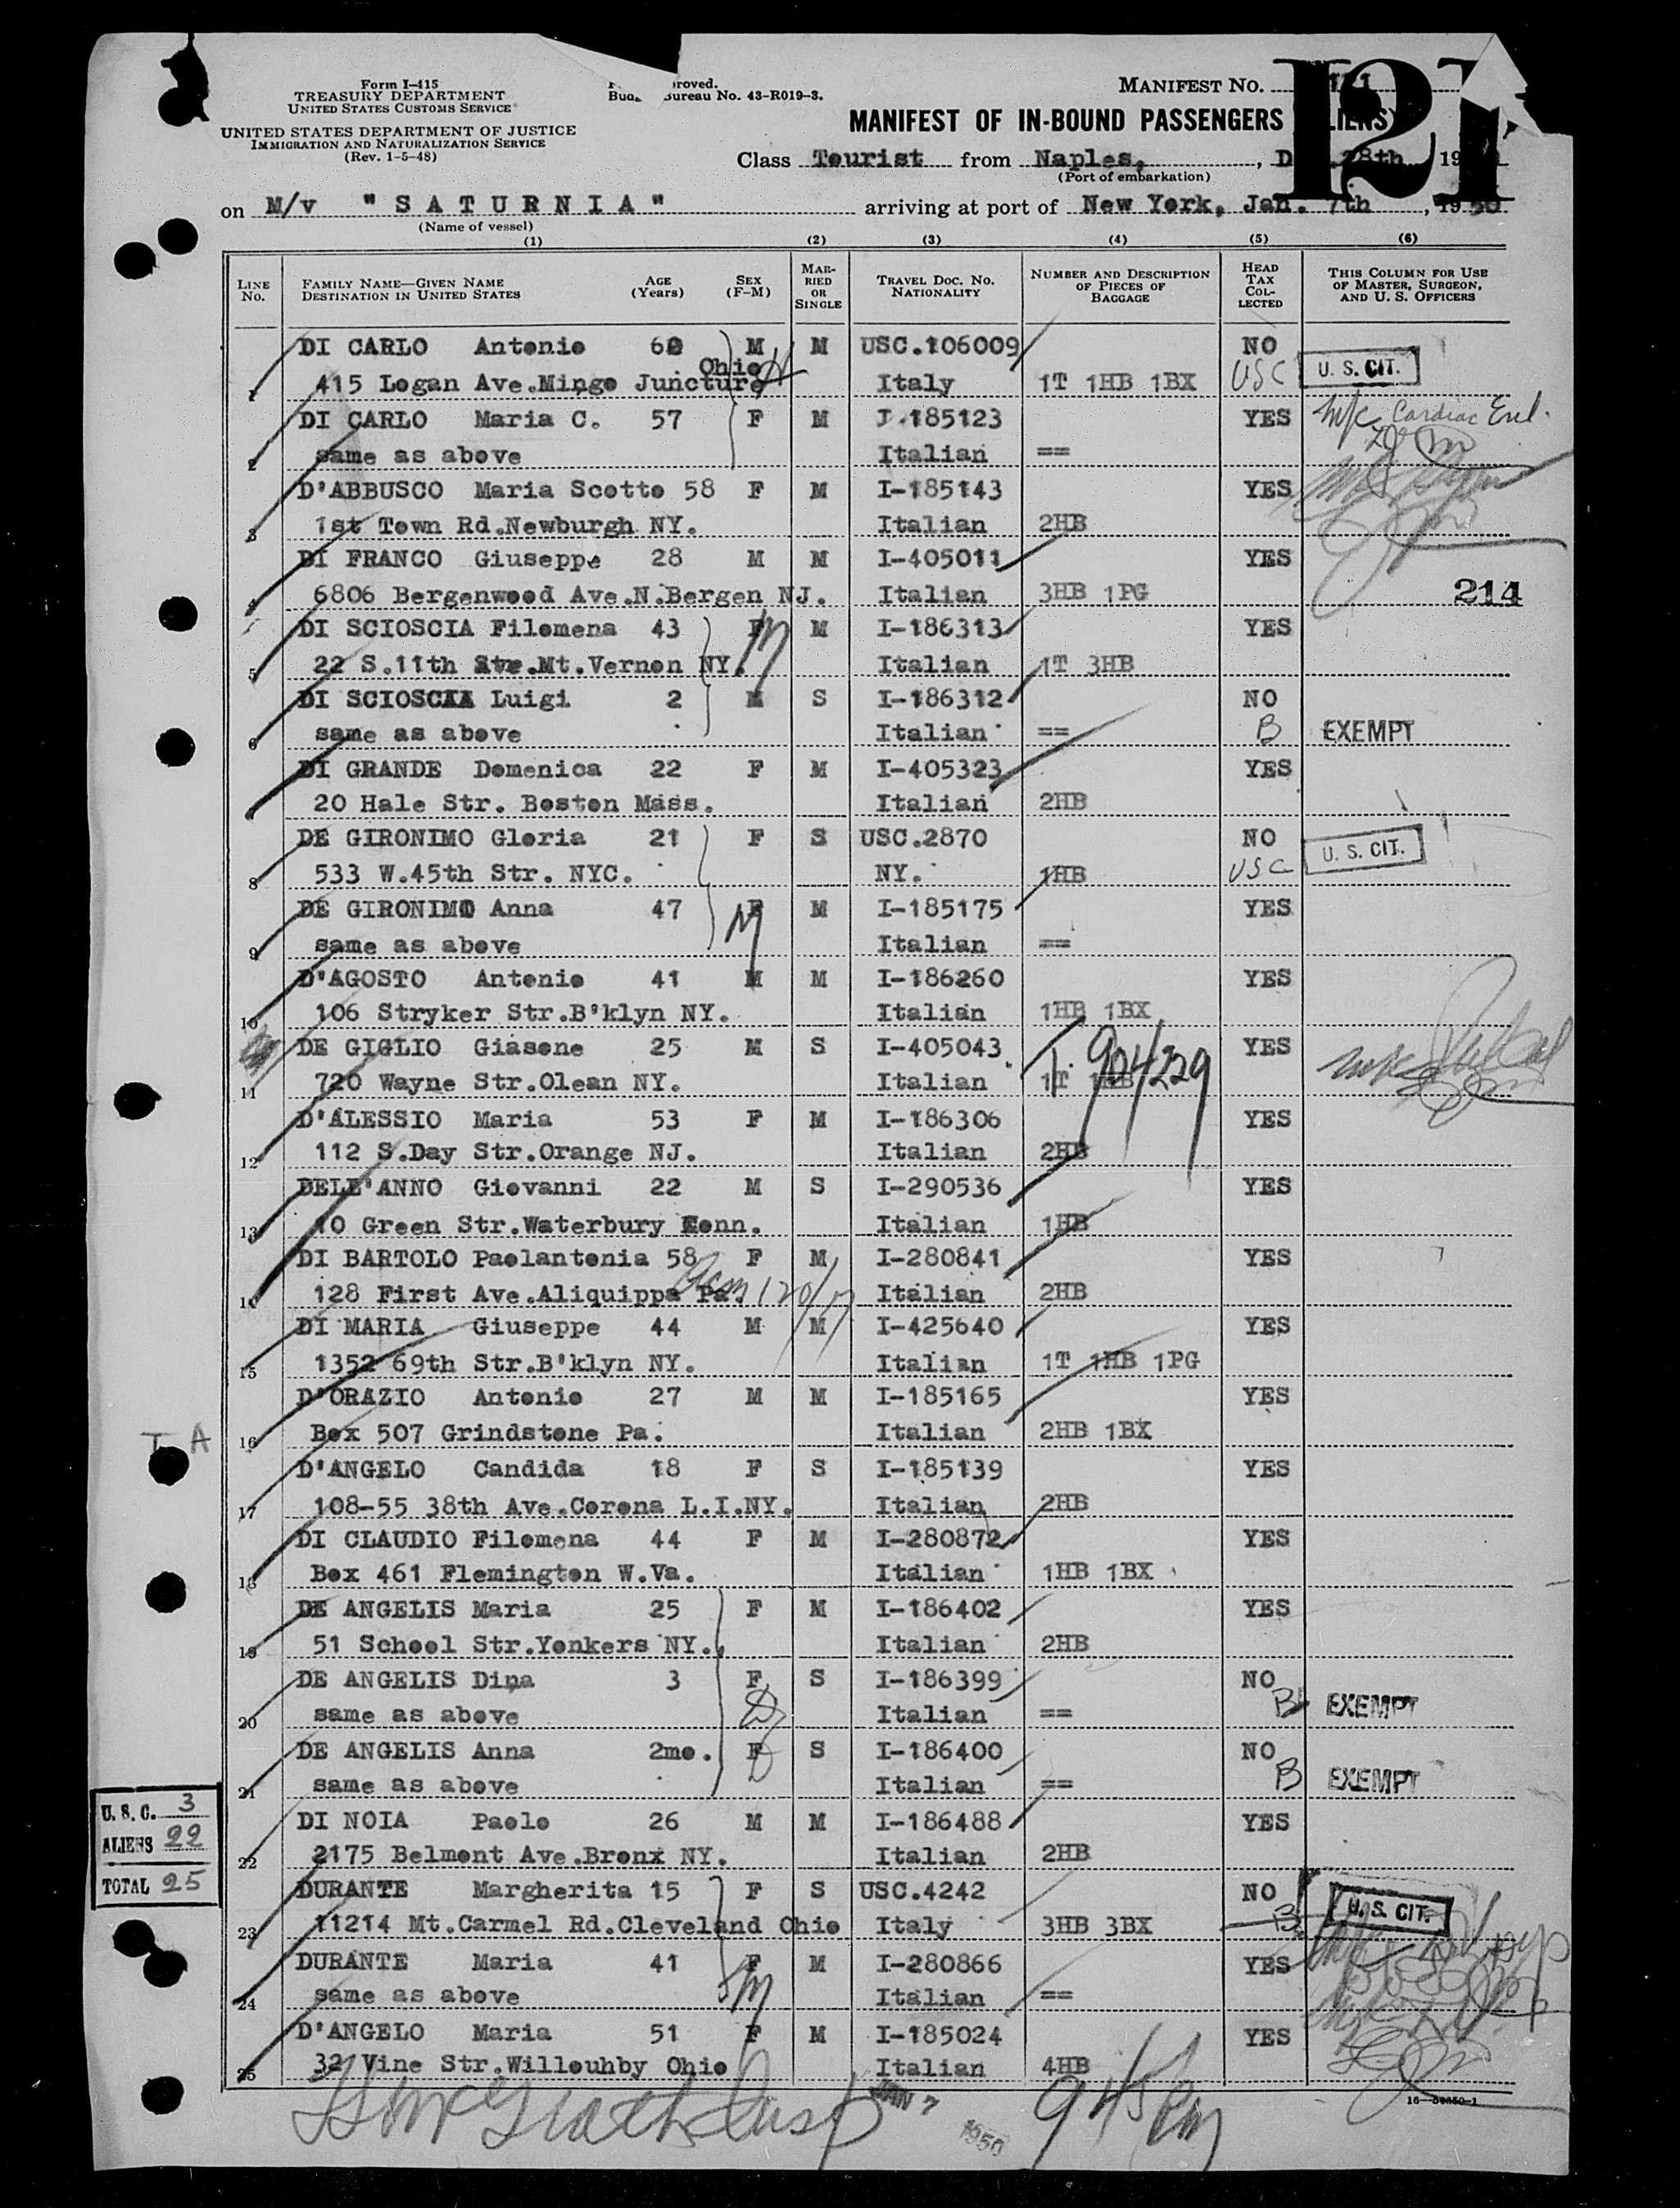 Form I-415
TREASURY DEPARTMENT
UNITED STATES CUSTOMS SERVICE
UNITED STATES DEPARTMENT OF JUSTICE
IMMIGRATION AND NATURALIZATION SERVICE
(Rev. 1-5-48)
roved.
ureau No. 43-R019-3.
MANIFEST NO.
121
MANIFEST OF IN-BOUND PASSENGERS
Class Tourist from Naples, , D 28th 19
(Port of embarkation)
on M/v "SATURNIA" arriving at port of New York, Jan. 7th , 1950
(Name of vessel)
(1) (2) (3) (4) (5) (6)
LINE No. FAMILY NAME—GIVEN NAME DESTINATION IN UNITED STATES AGE (Years) SEX (F-M) MARRIED OR SINGLE TRAVEL DOC. NO. NATIONALITY NUMBER AND DESCRIPTION OF PIECES OF BAGGAGE HEAD TAX COLLECTED THIS COLUMN FOR USE OF MASTER, SURGEON, AND U. S. OFFICERS
DI CARLO Antonio 60 M M USC.106009 NO
Ohio
1 415 Logan Ave.Mingo Juncture Italy 1T 1HB 1BX USC U. S. CIT.
DI CARLO Maria C. 57 F M I-185123 YES Cardiac Enl.
2 same as above Italian ==
D'ABBUSCO Maria Scotto 58 F M I-185143 YES
3 1st Town Rd.Newburgh NY. Italian 2HB
DI FRANCO Giuseppe 28 M M I-405011 YES
4 6806 Bergenwood Ave.N.Bergen NJ. Italian 3HB 1PG 214
DI SCIOSCIA Filomena 43 F M I-186313 YES
5 22 S.11th Ave.Mt.Vernon NY. Italian 1T 3HB
DI SCIOSCIA Luigi 2 M S I-186312 NO
6 same as above Italian == B EXEMPT
DI GRANDE Domenica 22 F M I-405323 YES
20 Hale Str. Boston Mass. Italian 2HB
DE GIRONIMO Gloria 21 F S USC.2870 NO
8 533 W.45th Str. NYC. NY. 1HB USC U. S. CIT.
DE GIRONIMO Anna 47 F M I-185175 YES
9 same as above Italian ==
D'AGOSTO Antonio 41 M M I-186260 YES
10 106 Stryker Str.B'klyn NY. Italian 1HB 1BX
DE GIGLIO Giasone 25 M S I-405043 904229 YES
11 720 Wayne Str.Olean NY. Italian 1T 1HB
D'ALESSIO Maria 53 F M I-186306 YES
12 112 S.Day Str.Orange NJ. Italian 2HB
DELL'ANNO Giovanni 22 M S I-290536 YES
13 10 Green Str.Waterbury Conn. Italian 1HB
DI BARTOLO Paolantonia 58 F M I-280841 YES
14 128 First Ave.Aliquippa Pa. Italian 2HB
DI MARIA Giuseppe 44 M M I-425640 YES
15 1352 69th Str.B'klyn NY. Italian 1T 1HB 1PG
D'ORAZIO Antonio 27 M M I-185165 YES
T A 16 Box 507 Grindstone Pa. Italian 2HB 1BX
D'ANGELO Candida 18 F S I-185139 YES
17 108-55 38th Ave.Corona L.I.NY. Italian 2HB
DI CLAUDIO Filomena 44 F M I-280872 YES
18 Box 461 Flemington W.Va. Italian 1HB 1BX
DE ANGELIS Maria 25 F M I-186402 YES
19 51 School Str.Yonkers NY. Italian 2HB
DE ANGELIS Dina 3 F S I-186399 NO
20 same as above Italian == B EXEMPT
DE ANGELIS Anna 2mo. F S I-186400 NO
21 same as above Italian == B EXEMPT
U. S. C. 3
ALIENS 22
TOTAL 25
DI NOIA Paolo 26 M M I-186488 YES
22 2175 Belmont Ave.Bronx NY. Italian 2HB
DURANTE Margherita 15 F S USC.4242 NO
23 11214 Mt.Carmel Rd.Cleveland Ohio Italy 3HB 3BX B U. S. CIT.
DURANTE Maria 41 F M I-280866 YES
24 same as above Italian ==
D'ANGELO Maria 51 F M I-185024 YES
25 32 Vine Str.Willouhby Ohio Italian 4HB
JAN 7 1950
945 PM